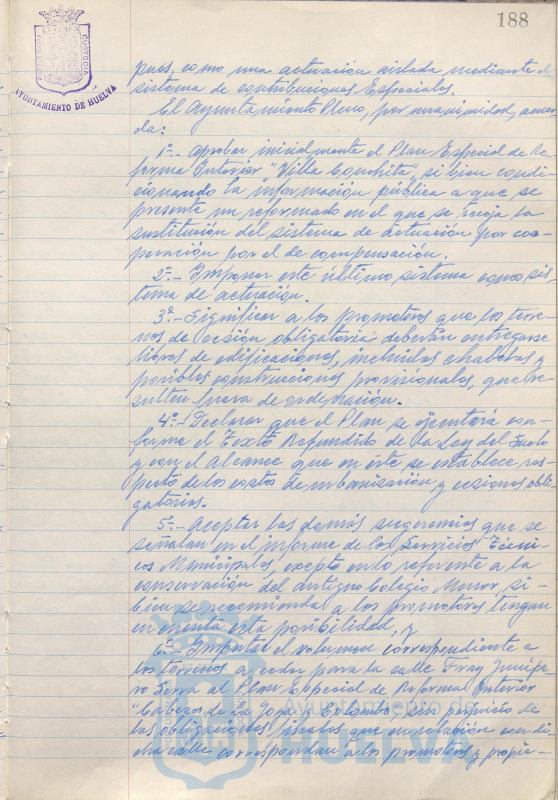 188
AYUNTAMIENTO DE HUELVA
pues, como una actuación aislada mediante el
sistema de contribuciones Especiales.
El Ayuntamiento Pleno, por unanimidad, acuer-
da:
1º.- Aprobar inicialmente el Plan Especial de Re-
forma Interior "Villa Conchita", si bien condi-
cionando la información pública a que se
presente un reformado en el que se recoja la
sustitución del sistema de actuación por coo-
peración por el de compensación.
2º.- Imponer este último sistema como sis-
tema de actuación.
3º.- Significar a los promotores que los terre-
nos de cesión obligatoria deberán entregarse
libres de edificaciones, incluidas chabolas y
posibles construcciones provisionales, que re-
sulten fuera de ordenación.
4º.- Declarar que el Plan se ejecutará con-
forme el Texto Refundido de la Ley del Suelo
y con el alcance que en éste se establece, res-
pecto de los costos de urbanización y cesiones obli-
gatorias.
5º.- Aceptar las demás sugerencias que se
señalan en el informe de los Servicios Técni-
cos Municipales, excepto en lo referente a la
conservación del antiguo Colegio Menor, si-
bien se recomienda a los promotores tengan
en cuenta esta posibilidad, y
6º.- Imputar el volumen correspondiente a
los terrenos a ceder para la calle Fray Junípe-
ro Serra al Plan Especial de Reforma Interior
"Cabezo de la Joya - Colombo", sin perjuicio de
las obligaciones fiscales que en relación con di-
cha calle correspondan a los promotores y propie-
Ayuntamiento de
HUELVA